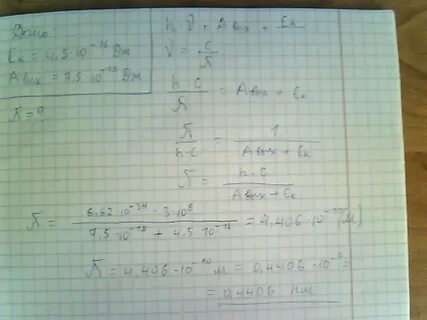 Дано:
Eк = 4,5 · 10⁻¹⁶ Дж
Aвых = 7,5 · 10⁻¹⁹ Дж
λ = ?
h · ν = Aвых + Eк
ν = c/λ
h·c/λ = Aвых + Eк
λ/h·c = 1/(Aвых + Eк)
λ = h·c/(Aвых + Eк)
λ = 6,62·10⁻³⁴ · 3·10⁸/(7,5·10⁻¹⁹ + 4,5·10⁻¹⁶) = 4,406·10⁻¹⁰ [м]
λ = 4,406 · 10⁻¹⁰ м = 0,4406 · 10⁻⁹ =
= 0,4406 нм